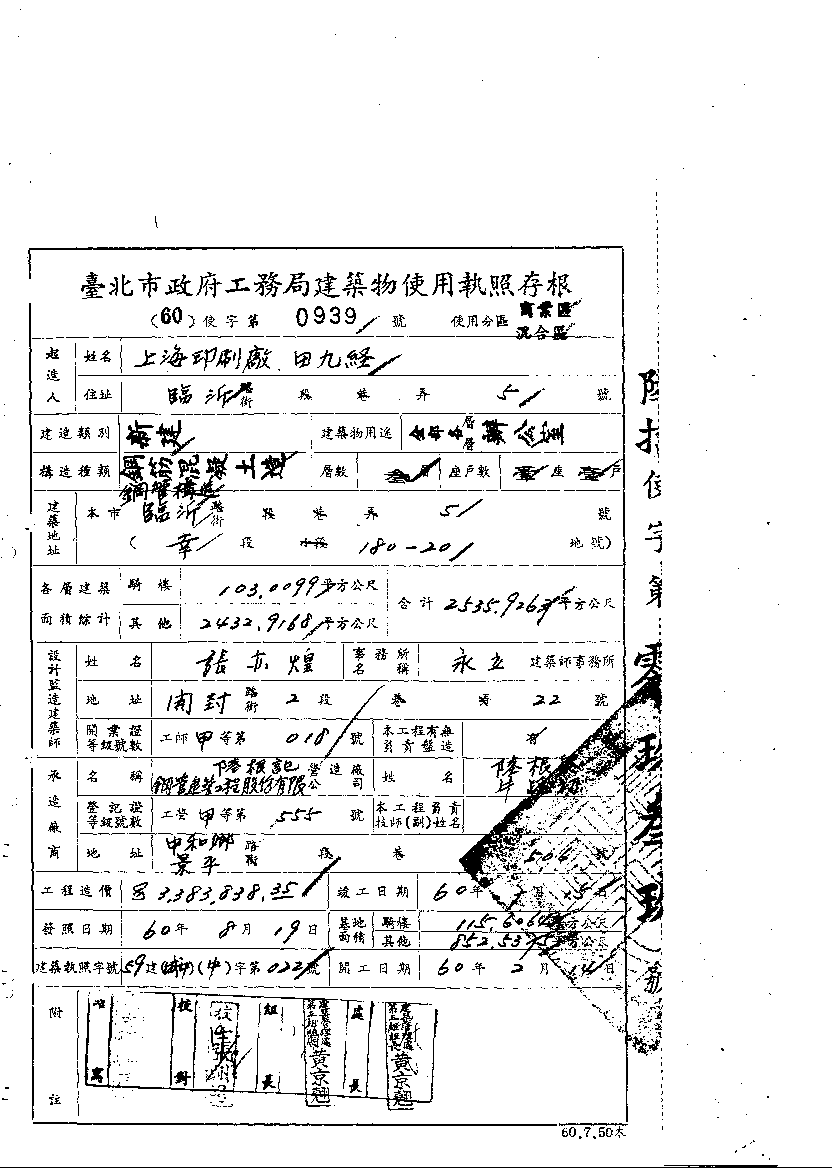 臺北市政府工務局建築物使用執照存根
(60)使字第 0939 號 使用分區 商業區 混合區
起造人 姓名 上海印刷廠 田九経
住址 臨沂 路街 段 巷 弄 51 號
建造類別 新建 建築物用途 全部各層 辦公室
構造種類 鋼筋混凝土造 鋼管構造 層數 叁層 座戶數 壹座 壹戶
建築地址 本市 臨沂 路街 段 巷 弄 51 號
(幸 段 小段 180-20 地號)
各層建築面積綜計 騎樓 103.0099平方公尺 合計 2535.9267平方公尺
其他 2432.9168平方公尺
設計監造建築師 姓名 張亦煌 事務所名稱 永立 建築師事務所
地址 開封 路街 2段 巷 22號
開業證等級號數 工師甲等第 018 號 本工程有無負責監造 有
承造廠商 名稱 陸根記鋼管建築工程股份有限公司 營造廠 姓名 陸根
登記證等級號數 工營甲等第 555 號 本工程負責技師(副)姓名
地址 中和鄉景平 路街 段 巷 504 號
工程造價 3,383,838.35 竣工日期 60年 月 5日
發照日期 60年 8月 19日 基地面積 騎樓 115.6064平方公尺
其他 852.5375平方公尺
建築執照字號 59建( )(中)字第022號 開工日期 60年 2月 14日
附註 校對 組長 黃京翹 處長 黃京翹
60.7.50本
使字第零玖叁玖號